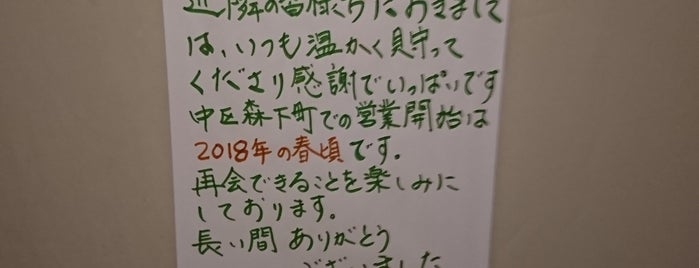 近隣の皆様方におきまして
は、いつも温かく見守って
くださり感謝でいっぱいです
中区森下町での営業開始は
2018年の春頃です。
再会できることを楽しみに
しております。
長い間 ありがとう
ございました